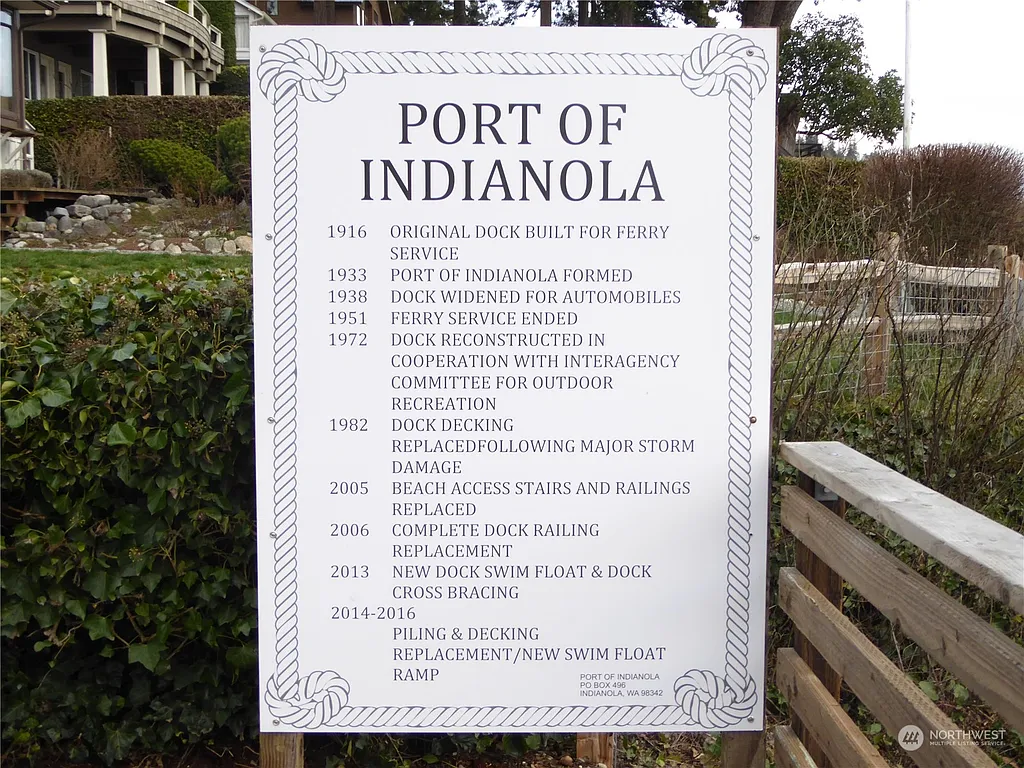 PORT OF
INDIANOLA
1916 ORIGINAL DOCK BUILT FOR FERRY
SERVICE
1933 PORT OF INDIANOLA FORMED
1938 DOCK WIDENED FOR AUTOMOBILES
1951 FERRY SERVICE ENDED
1972 DOCK RECONSTRUCTED IN
COOPERATION WITH INTERAGENCY
COMMITTEE FOR OUTDOOR
RECREATION
1982 DOCK DECKING
REPLACEDFOLLOWING MAJOR STORM
DAMAGE
2005 BEACH ACCESS STAIRS AND RAILINGS
REPLACED
2006 COMPLETE DOCK RAILING
REPLACEMENT
2013 NEW DOCK SWIM FLOAT & DOCK
CROSS BRACING
2014-2016
PILING & DECKING
REPLACEMENT/NEW SWIM FLOAT
RAMP
PORT OF INDIANOLA
PO BOX 496
INDIANOLA, WA 98342
NORTHWEST
MULTIPLE LISTING SERVICE